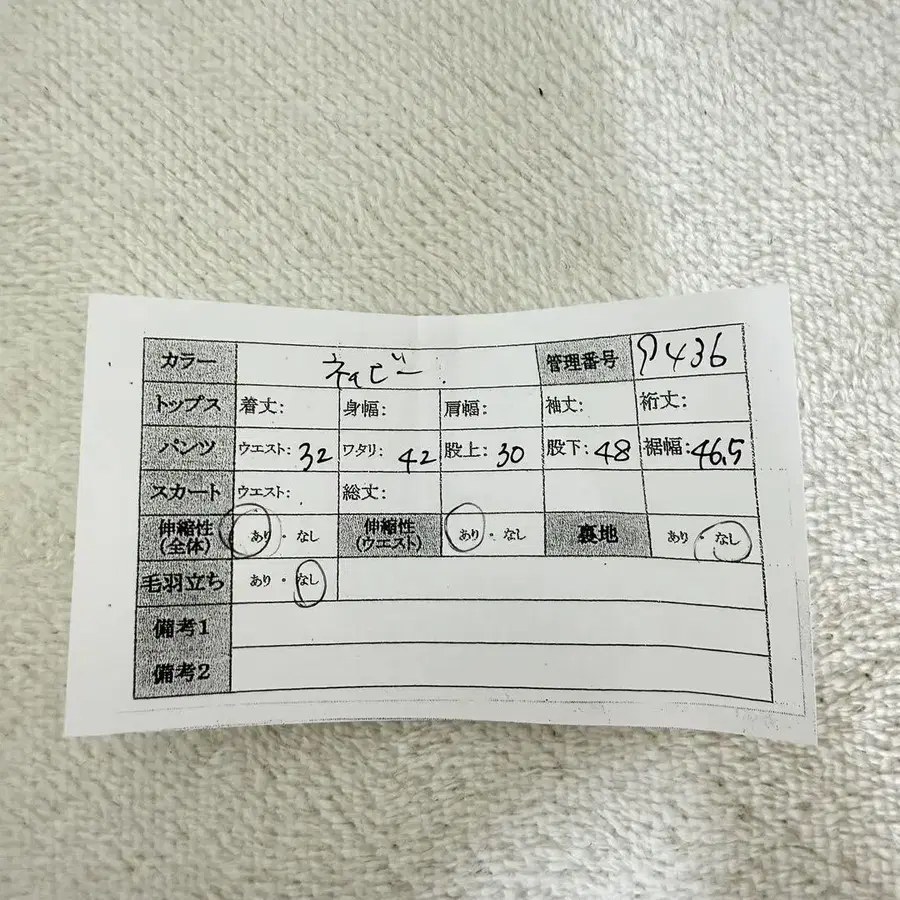 カラー ネイビー 管理番号 9436
トップス 着丈: 身幅: 肩幅: 袖丈: 裄丈:
パンツ ウエスト: 32 ワタリ: 42 股上: 30 股下: 48 裾幅: 46.5
スカート ウエスト: 総丈:
伸縮性(全体) あり・なし 伸縮性(ウエスト) あり・なし 裏地 あり・なし
毛羽立ち あり・なし
備考1
備考2